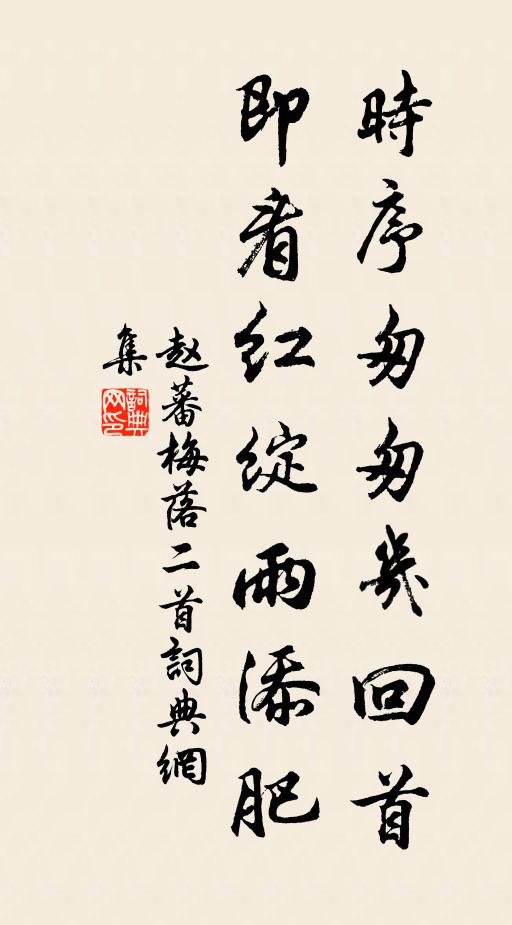 時序匆匆幾回首
即看紅綻雨添肥
赵蕃梅落二首詞典網
集
詞典
网印